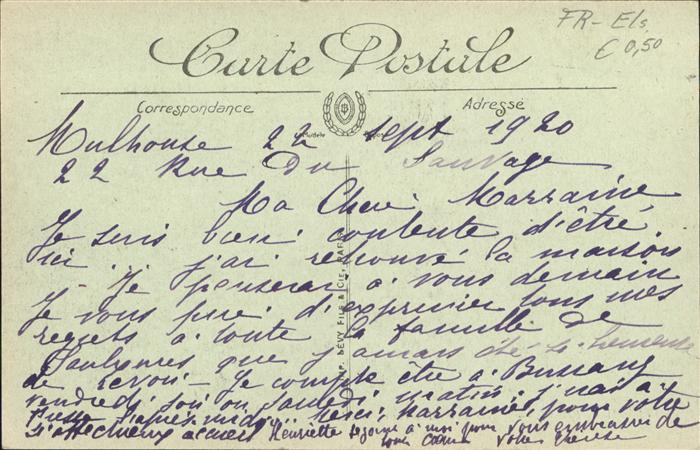 FR-Els
€ 0,50
Carte Postale
Correspondance
Adresse
Mulhouse 22 sept 1920
22 Rue Du Sauvage
Ma Chere Marraine
Je suis bien contente d'être
ici. j'ai retrouvé la maison
Je penserai à vous demain
Je vous prie d'exprimer tous mes
regrets à toute la famille de
que j'aurais été si heureuse
de revoir - Je compte être à Bussang
vendredi soir ou samedi matin. j'irai à
Merci, Marraine, pour votre
si affectueux accueil Henriette se joint à moi pour vous embrasser de
tout cœur Votre
IMP. LÉVY FILS & CIE, PARIS